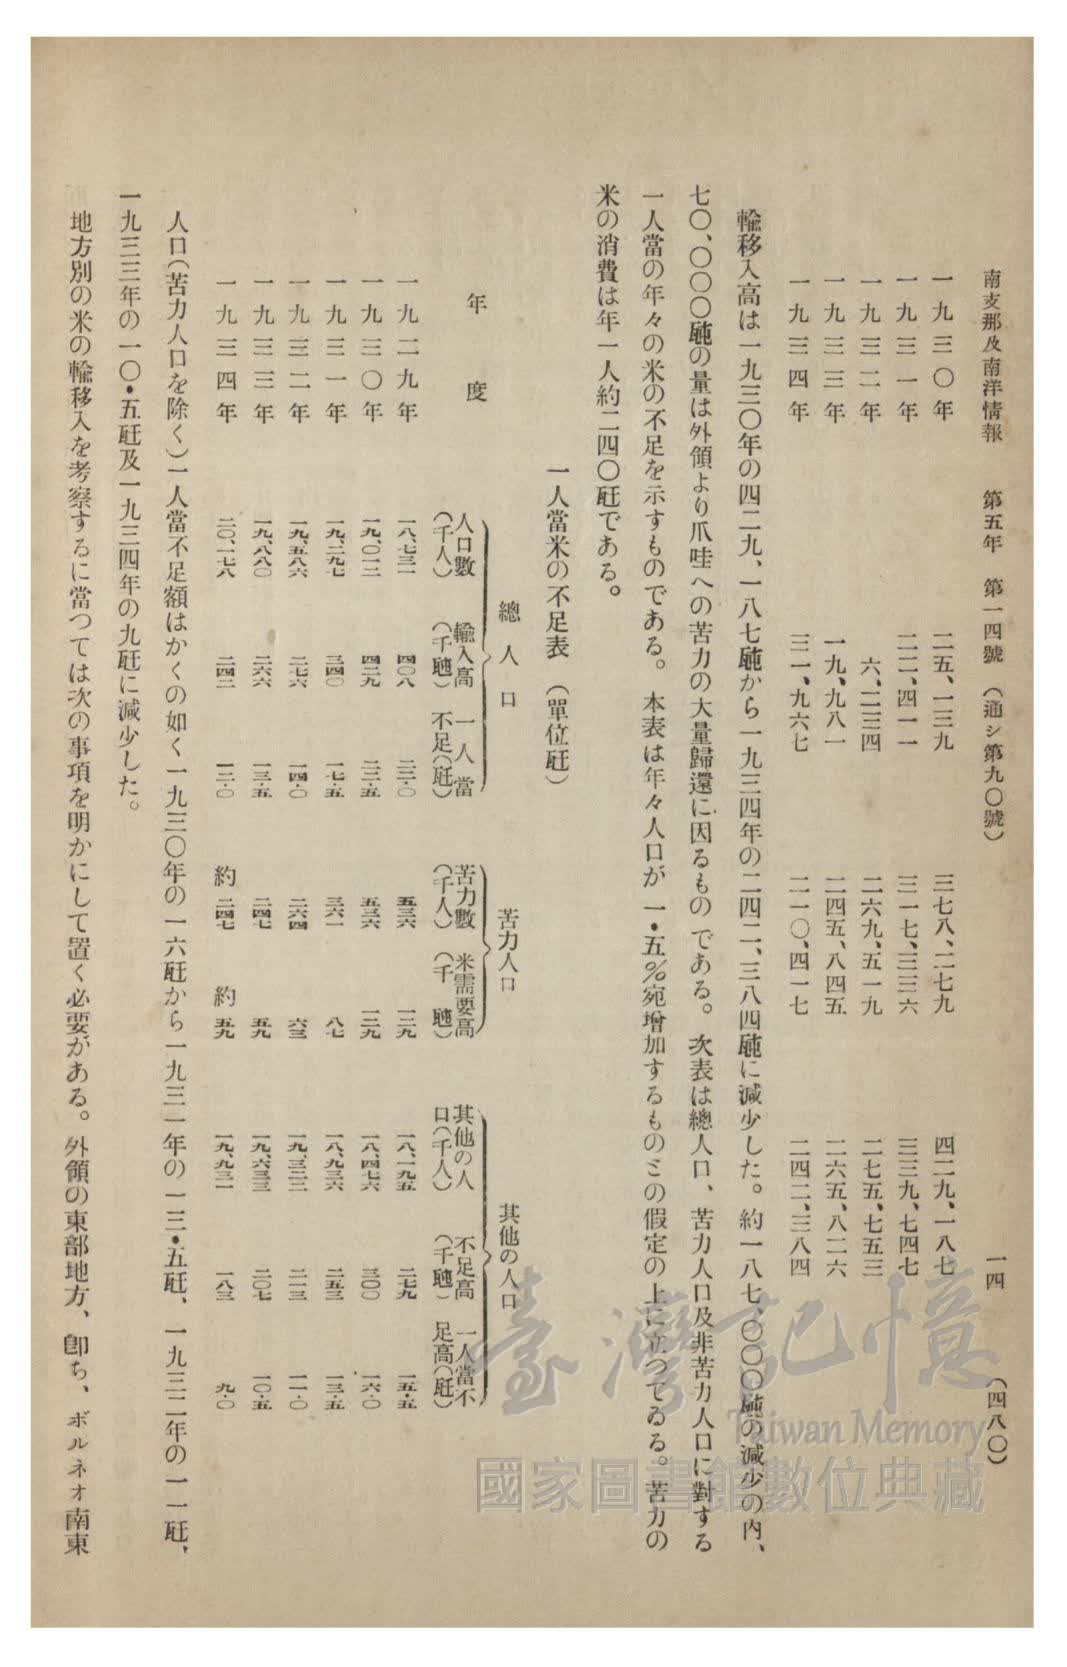 南支那及南洋情報　第五年　第一四號　（通シ第九〇號）　一四　（四八〇）
一九三〇年　二五、一三九　三七八、二七九　四二九、一八七
一九三一年　二二、四一一　三一七、三三六　三三九、七四七
一九三二年　六、二三四　二六九、五一九　二七五、七五三
一九三三年　一九、九八一　二四五、八四五　二六五、八二六
一九三四年　三一、九六七　二一〇、四一七　二四二、三八四
輸移入高は一九三〇年の四二九、一八七瓲から一九三四年の二四二、三八四瓲に減少した。約一八七、〇〇〇瓲の減少の内、
七〇、〇〇〇瓲の量は外領より爪哇への苦力の大量歸還に因るものである。次表は總人口、苦力人口及非苦力人口に對する
一人當の年々の米の不足を示すものである。本表は年々人口が一・五％宛增加するものとの假定の上に立つてゐる。苦力の
米の消費は年一人約二四〇瓩である。
一人當米の不足表　（單位瓩）
總人口　苦力人口　其他の人口
年度　人口數（千人）　輸入高（千瓲）　一人當不足（瓩）　苦力數（千人）　米需要高（千瓲）　其他の人口（千人）　不足高（千瓲）　一人當不足高（瓩）
一九二九年　一八、七三一　四〇八　二二・〇　五三六　一二九　一八、一九五　二七九　一五・五
一九三〇年　一九、〇一二　四二九　二二・五　五三六　一二九　一八、四七六　三〇〇　一六・〇
一九三一年　一九、二九七　三四〇　一七・五　三六一　八七　一八、九三六　二五三　一三・五
一九三二年　一九、五八六　二七六　一四・〇　二六四　六三　一九、三二二　二一三　一一・〇
一九三三年　一九、八八〇　二六六　一三・五　二四七　五九　一九、六三三　二〇七　一〇・五
一九三四年　二〇、一七八　二四二　一二・〇　約二四七　約五九　一九、九三一　一八三　九・〇
人口（苦力人口を除く）一人當不足額はかくの如く一九三〇年の一六瓩から一九三一年の一三・五瓩、一九三二年の一一瓩、
一九三三年の一〇・五瓩及一九三四年の九瓩に減少した。
地方別の米の輸移入を考察するに當つては次の事項を明かにして置く必要がある。外領の東部地方、卽ち、ボルネオ南東
臺灣記憶
Taiwan Memory
國家圖書館數位典藏